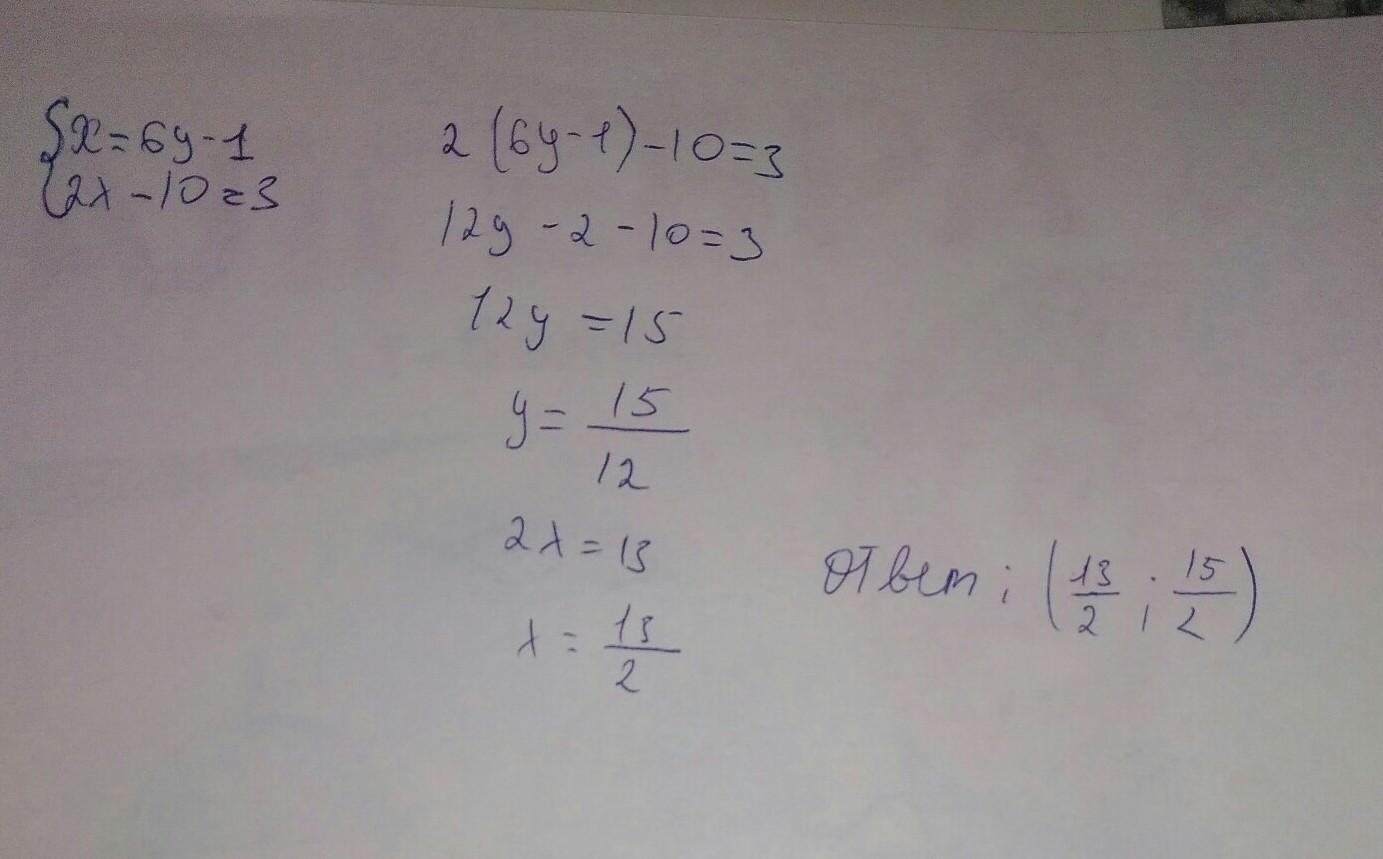 {x=6y-1
{2x-10=3
2(6y-1)-10=3
12y-2-10=3
12y=15
y=15/12
2x=13
x=13/2
Ответ: (13/2; 15/2)